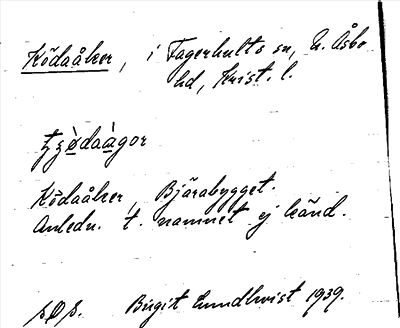 Ködaåker, i Fagerhults sn, N. Åsbo
hd, Krist. l.
tʒødaàgor
Ködaåker, Bjärabygget.
Anledn. t. namnet ej känd.
Birgit Lundkvist 1939.